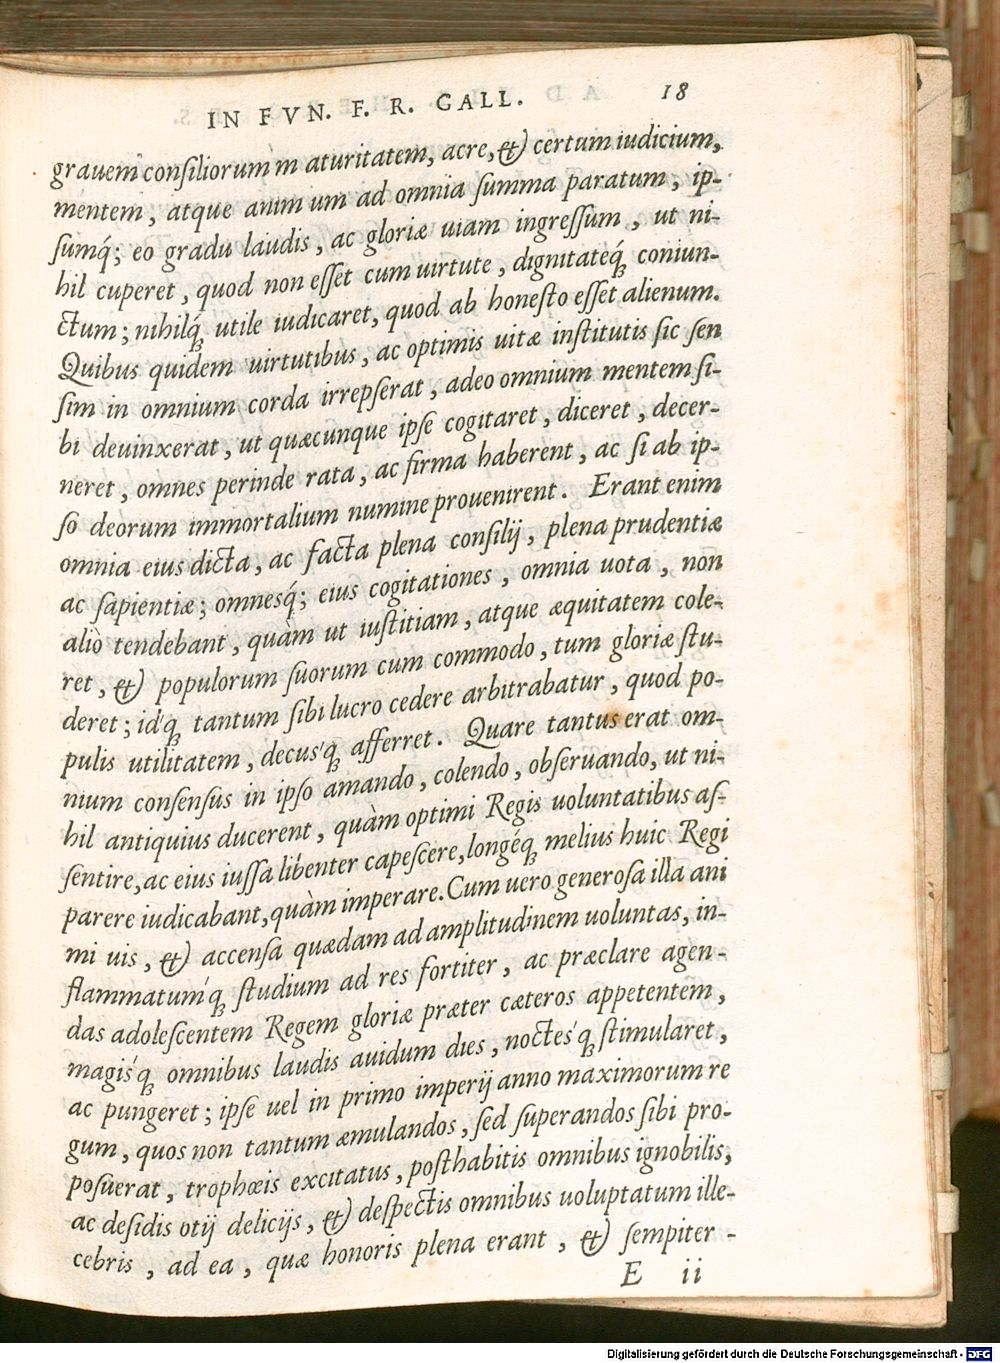 IN FVN. F. R. GALL. 18
grauem conſiliorum m aturitatem, acre, & certum iudicium,
mentem, atque anim um ad omnia ſumma paratum, ip-
ſumq́; eo gradu laudis, ac gloriæ uiam ingreſſum, ut ni-
hil cuperet, quod non eſſet cum uirtute, dignitateq́; coniun-
ctum; nihilq́; utile iudicaret, quod ab honeſto eſſet alienum.
Quibus quidem uirtutibus, ac optimis uitæ inſtitutis ſic ſen
ſim in omnium corda irrepſerat, adeo omnium mentem ſi-
bi deuinxerat, ut quæcunque ipſe cogitaret, diceret, decer-
neret, omnes perinde rata, ac firma haberent, ac ſi ab ip-
ſo deorum immortalium numine prouenirent. Erant enim
omnia eius dicta, ac facta plena conſilij, plena prudentiæ
ac ſapientiæ; omnesq́; eius cogitationes, omnia uota, non
aliò tendebant, quàm ut iuſtitiam, atque æquitatem cole-
ret, & populorum ſuorum cum commodo, tum gloriæ ſtu-
deret; idq́; tantum ſibi lucro cedere arbitrabatur, quod po-
pulis utilitatem, decusq́; afferret. Quare tantus erat om-
nium conſenſus in ipſo amando, colendo, obſeruando, ut ni-
hil antiquius ducerent, quàm optimi Regis uoluntatibus aſ-
ſentire, ac eius iuſſa libenter capeſcere, longéq; melius huic Regi
parere iudicabant, quàm imperare. Cum uero generoſa illa ani
mi uis, & accenſa quædam ad amplitudinem uoluntas, in-
flammatumq́; ſtudium ad res fortiter, ac præclare agen-
das adoleſcentem Regem gloriæ præter cæteros appetentem,
magisq́; omnibus laudis auidum dies, noctesq́; ſtimularet,
ac pungeret; ipſe uel in primo imperij anno maximorum re
gum, quos non tantum æmulandos, ſed ſuperandos ſibi pro-
poſuerat, trophæis excitatus, poſthabitis omnibus ignobilis,
ac deſidis otij delicijs, & deſpectis omnibus uoluptatum ille-
cebris, ad ea, quæ honoris plena erant, & ſempiter-
E ii
Digitalisierung gefördert durch die Deutsche Forschungsgemeinschaft - DFG